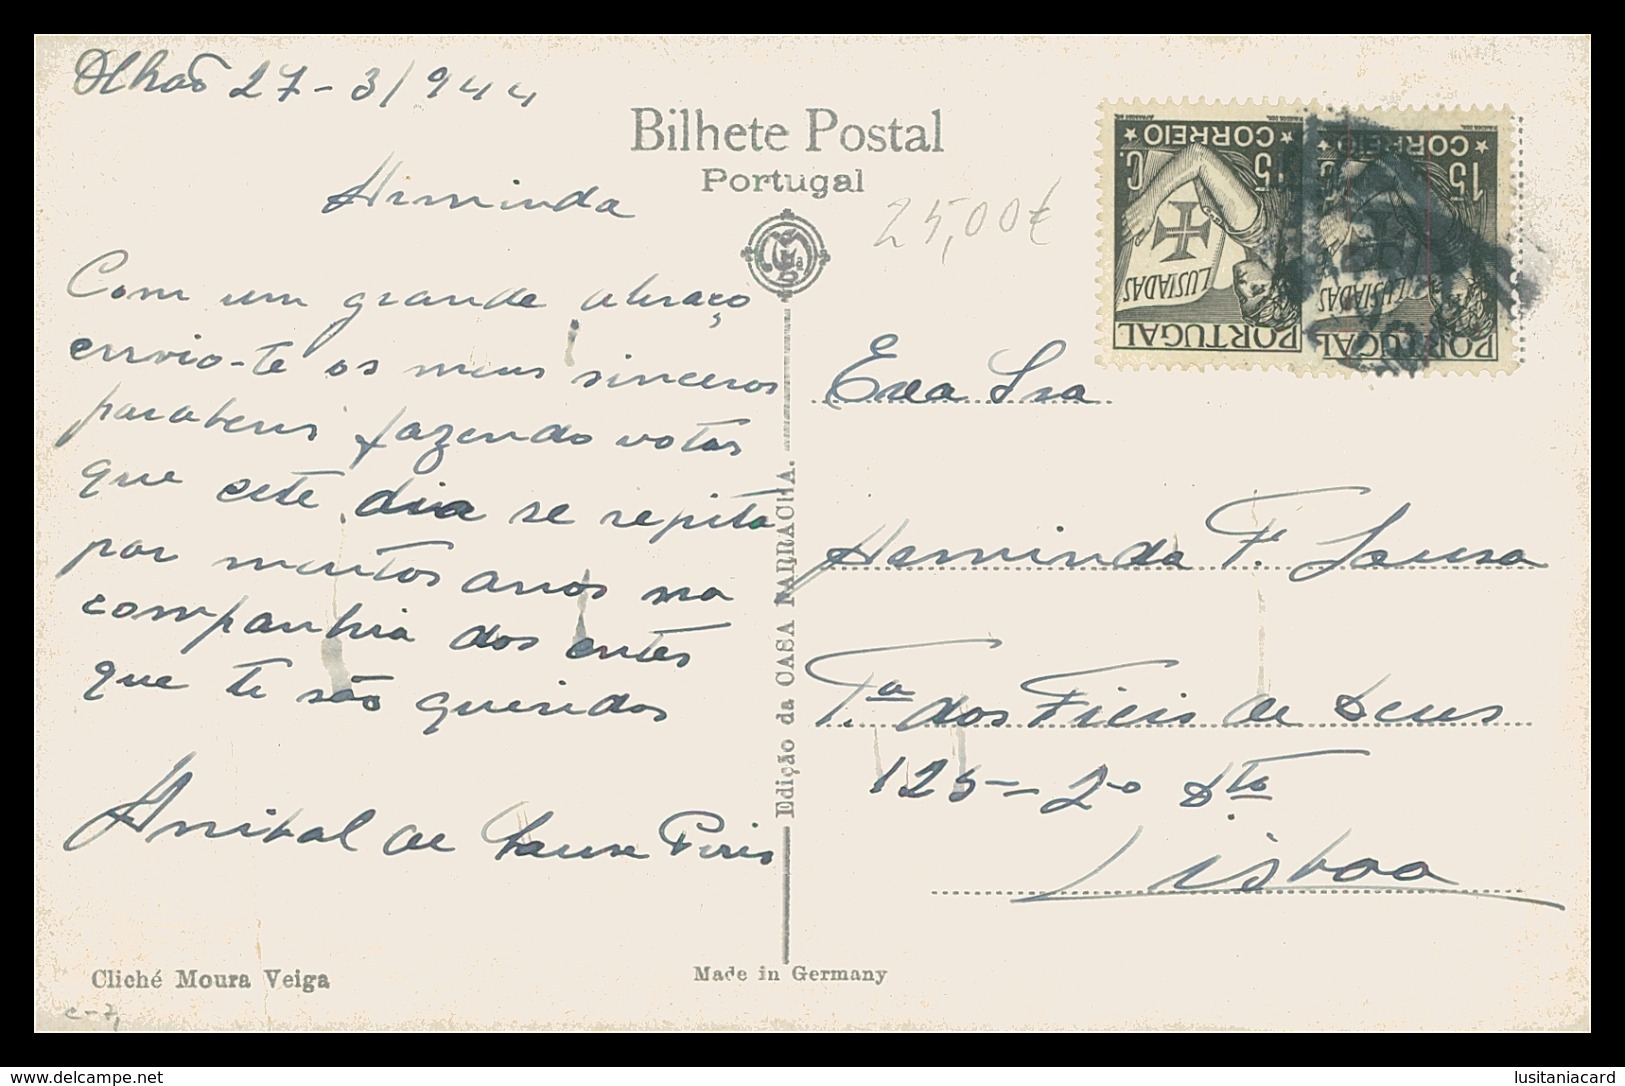 Olhão 27-3/944
Bilhete Postal
Portugal
Arminda
25,00€
Com um grande abraço
envio-te os meus sinceros
parabens fazendo votos
que este dia se repita
por muitos anos na
companhia dos entes
que te são queridos
Anibal de Sousa Pires
Cliché Moura Veiga
c-7,
Edição da CASA BARRACHA.
Made in Germany
15 C. CORREIO
LUSIADAS
PORTUGAL
15 C. CORREIO
LUSIADAS
PORTUGAL
Exa Sra
Herminda F. Sousa
T.ª dos Fieis de Deus
125-2º Dto
Lisboa
https://www.delcampe.net
lusitaniacard